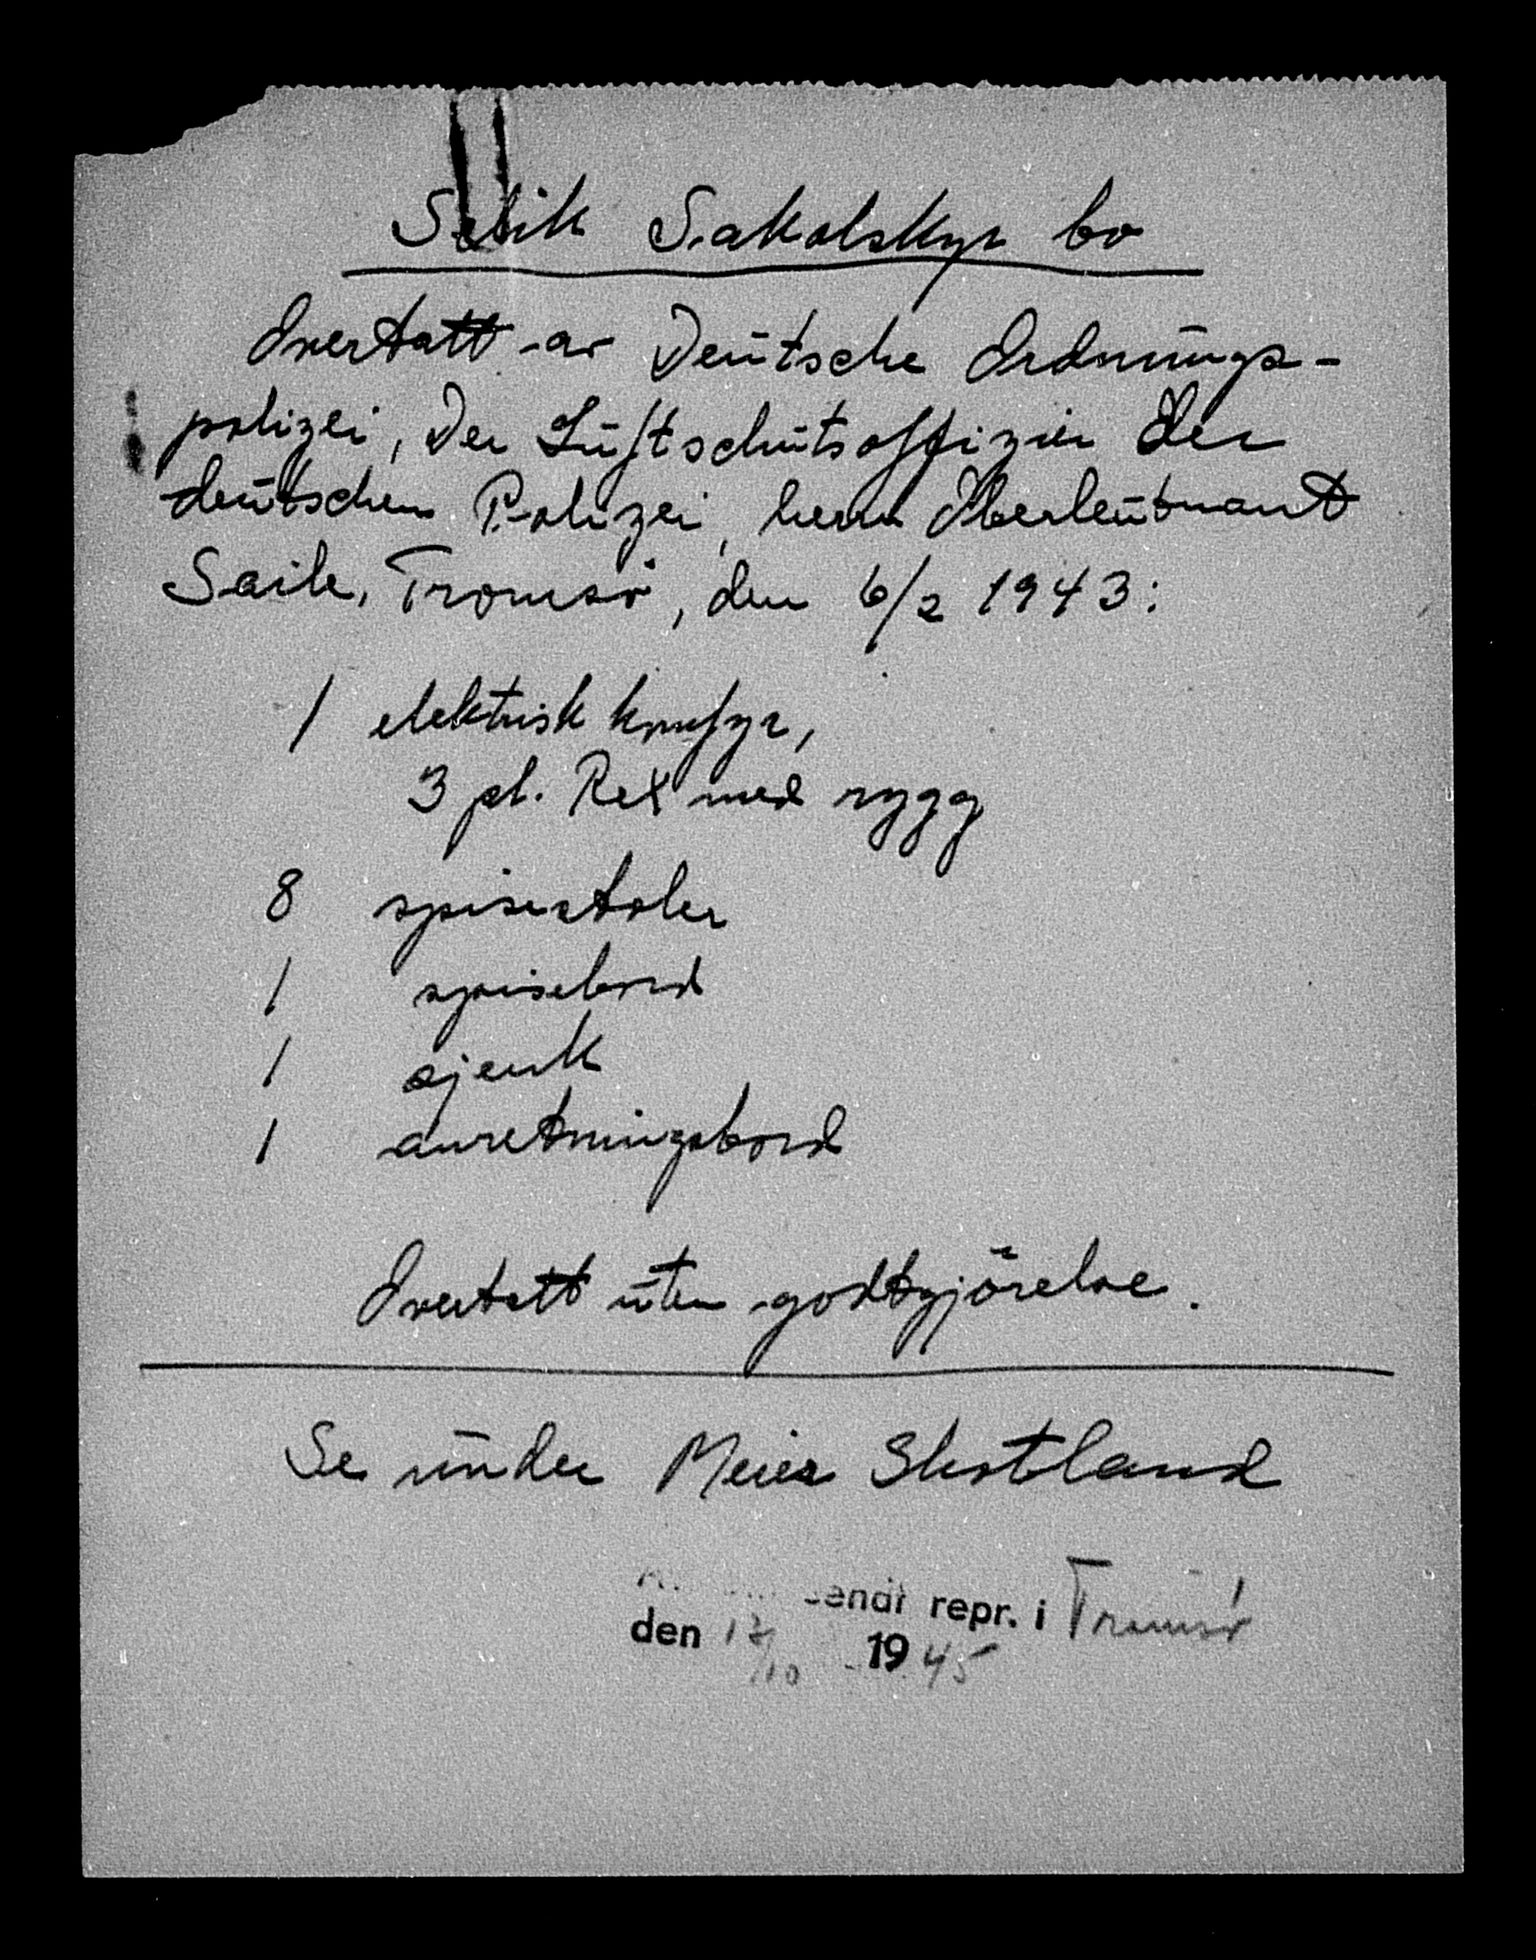 Selik Sakolskys bo
Overtatt av Deutsche Ordnungs-
polizei, Der Luftschutsoffizier der
deutschen Polizei, herr Oberleutnant
Saile, Tromsö, den 6/2 1943:
1 elektrisk komfyr,
3 pl. Rex med rygg
8 spisestoler
1 spisebord
1 sjenk
1 anretningsbord
Overtatt uten godtgjörelse.
Se under Meier Skotland
repr. i Tromsö
den 17/10 1945